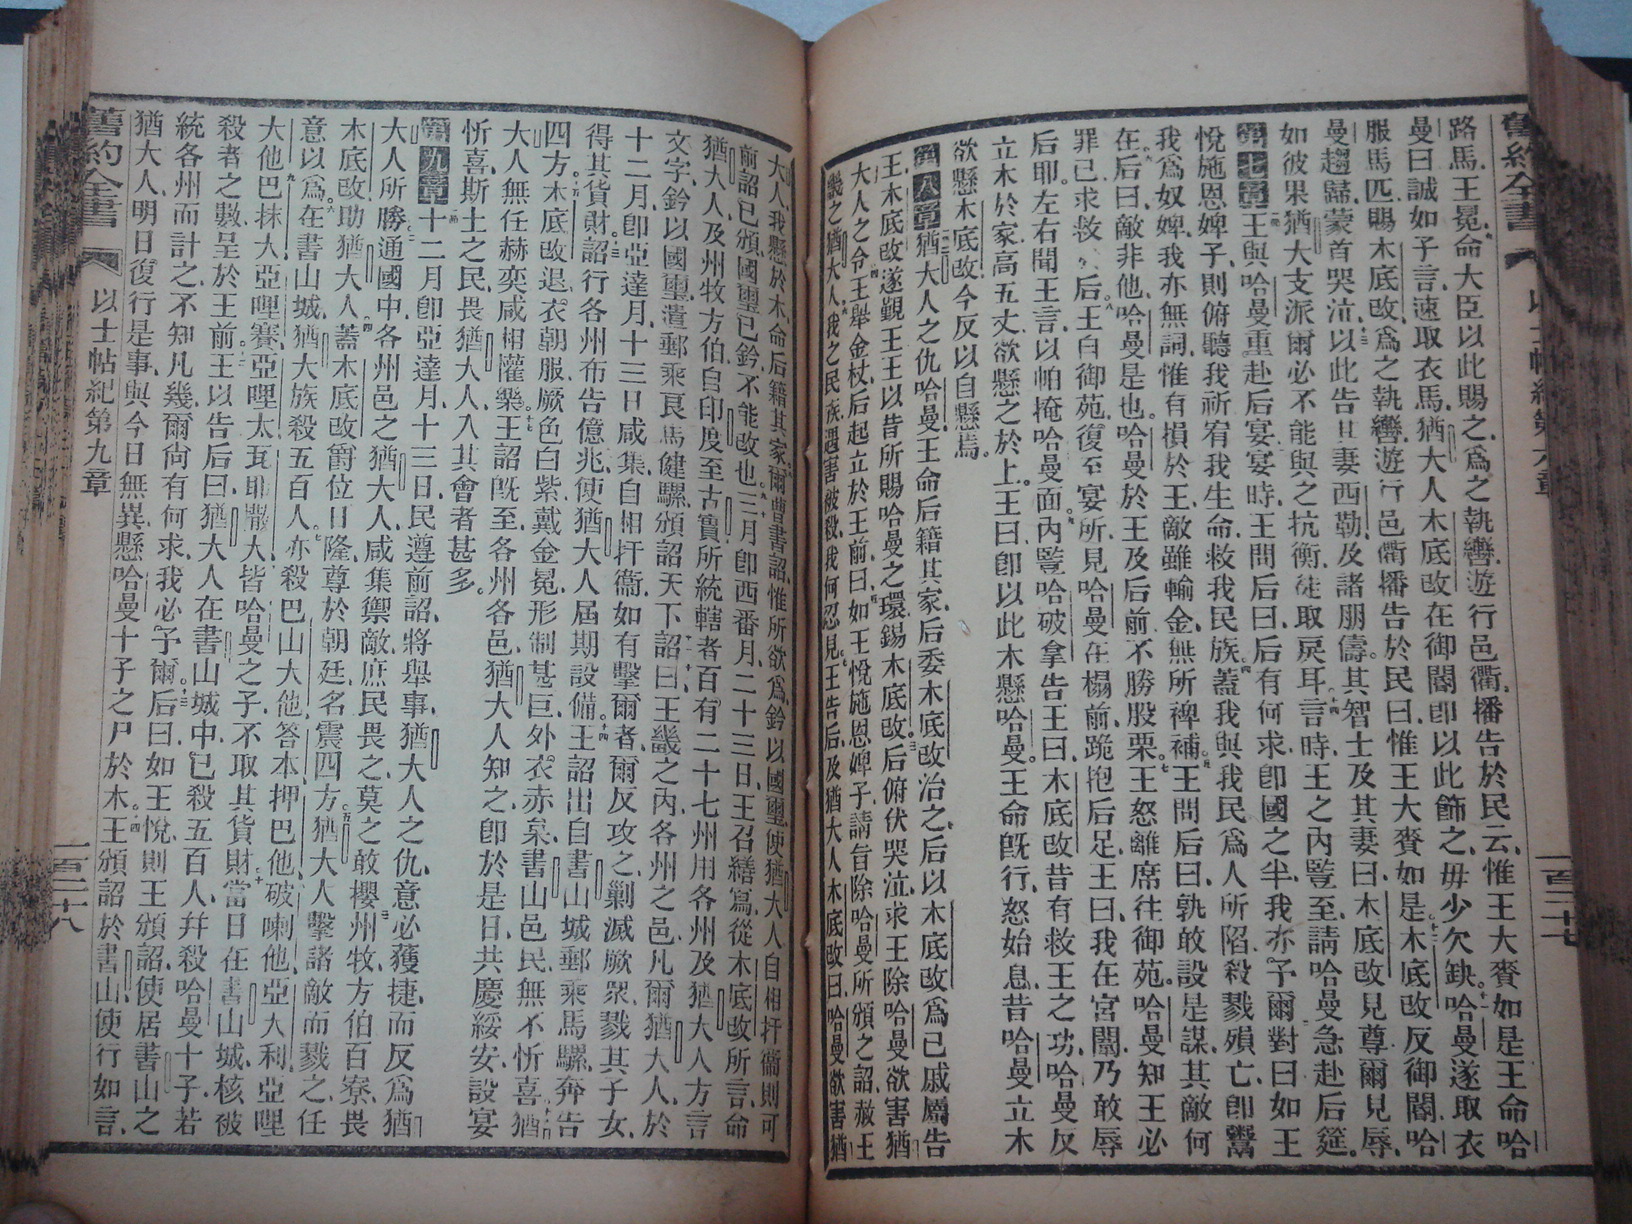 舊約全書
以士帖紀第六章
一百三十七
路馬王冕命大臣以此賜之爲之執轡遊行邑衢播告於民云惟王大賚如是王命哈
曼曰誠如子言速取衣馬猶大人木底改在御闥卽以此飾之毋少欠缺哈曼遂取衣
服馬匹賜木底改爲之執轡遊行邑衢播告於民曰惟王大賚如是木底改反御闥哈
曼趨歸蒙首哭泣以此告其妻西勒及諸朋儔其智士及其妻曰木底改見尊爾見辱
如彼果猶大支派爾必不能與之抗衡徒取戾耳言時王之內豎至請哈曼急赴后筵
第七章王與哈曼重赴后宴宴時王問后曰后有何求卽國之半我亦予爾對曰如王
悅施恩婢子則俯聽我祈宥我生命救我民族蓋我與我民爲人所陷殺戮殞亡卽鬻
我爲奴婢我亦無詞惟有損於王敵雖輸金無所裨補王問后曰孰敢設是謀其敵何
在后曰敵非他哈曼是也哈曼於王及后前不勝股栗王怒離席往御苑哈曼知王必
罪己求救於后王自御苑復至宴所見哈曼在榻前跪抱后足王曰我在宮闈乃敢辱
后耶左右聞王言以帕掩哈曼面內豎哈破拿告王曰木底改昔有救王之功哈曼反
立木於家高五丈欲懸之於上王曰卽以此木懸哈曼王命旣行怒始息昔哈曼立木
欲懸木底改今反以自懸焉
第八章猶大人之仇哈曼王命后籍其家后委木底改治之后以木底改爲已戚屬告
王木底改遂覲王王以昔所賜哈曼之環錫木底改后俯伏哭泣求王除哈曼欲害猶
大人之令王舉金杖后起立於王前曰如王悅施恩婢子請旨除哈曼所頒之詔赦王
畿之猶大人我之民族遇害被殺我何忍見王告后及猶大人木底改曰哈曼欲害猶
大人我懸於木命后籍其家爾曹書詔惟所欲爲鈐以國璽使猶大人自相扞衞則可
前詔已頒國璽已鈐不能改也三月卽西番月二十三日王召繕寫從木底改所言命
猶大人及州牧方伯自印度至古實所統轄者百有二十七州用各州及猶大人方言
文字鈐以國璽遣郵乘良馬健騾頒詔天下詔曰王畿之內各州之邑凡爾猶大人於
十二月卽亞達月十三日咸集自相扞衞如有擊爾者爾反攻之剿滅厥衆戮其子女
得其貨財詔行各州布告億兆使猶大人屆期設備王詔出自書山城郵乘馬騾奔告
四方木底改退衣朝服厥色白紫戴金冕形制甚巨外衣赤枲書山邑民無不忻喜猶
大人無任赫奕咸相懽樂王詔旣至各州各邑猶大人知之卽於是日共慶綏安設宴
忻喜斯土之民畏猶大人入其會者甚多
第九章十二月卽亞達月十三日民遵前詔將舉事猶大人之仇意必獲捷而反爲猶
大人所勝通國中各州邑之猶大人咸集禦敵庶民畏之莫之敢攖州牧方伯百寮畏
木底改助猶大人蓋木底改爵位日隆尊於朝廷名震四方猶大人擊諸敵而戮之任
意以爲在書山城猶大族殺五百人亦殺巴山大他答本押巴他破喇他亞大利亞哩
大他巴抹大亞哩賽亞哩太瓦耶撒大皆哈曼之子不取其貨財當日在書山城核被
殺者之數呈於王前王以告后曰猶大人在書山城中已殺五百人幷殺哈曼十子若
統各州而計之不知凡幾爾尙有何求我必予爾后曰如王悅則王頒詔使居書山之
猶大人明日復行是事與今日無異懸哈曼十子之尸於木王頒詔於書山使行如言
舊約全書
以士帖紀第九章
一百三十八